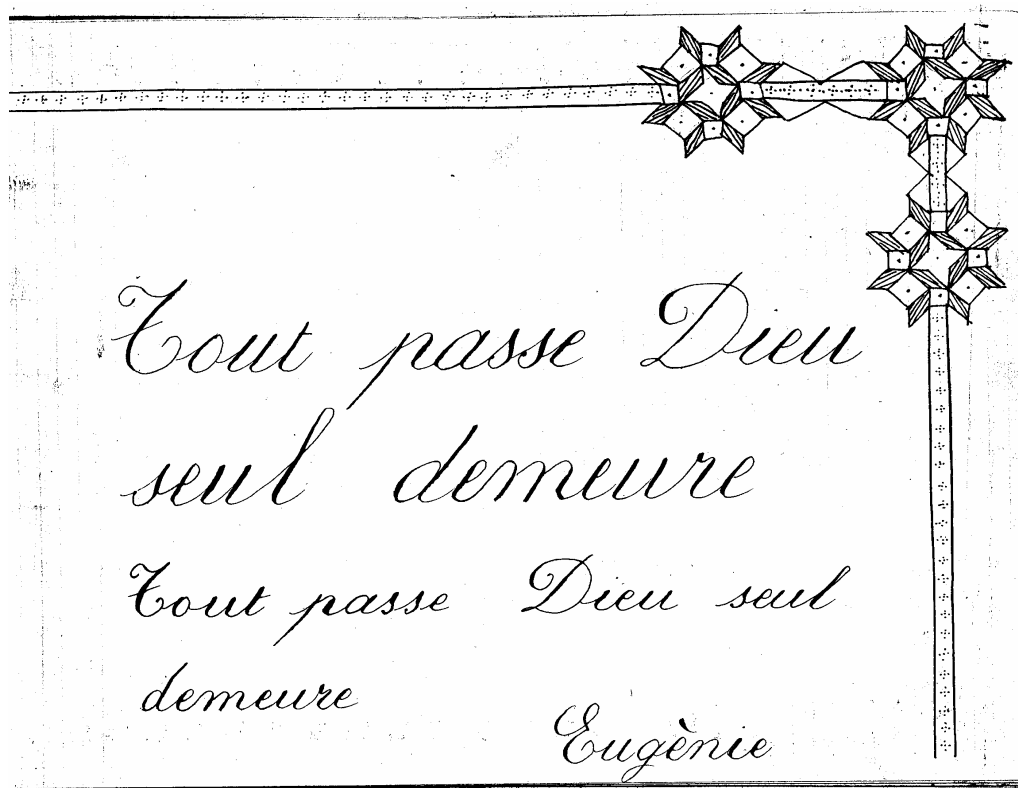 Tout passe Dieu
seul demeure
Tout passe Dieu seul
demeure
Eugènie